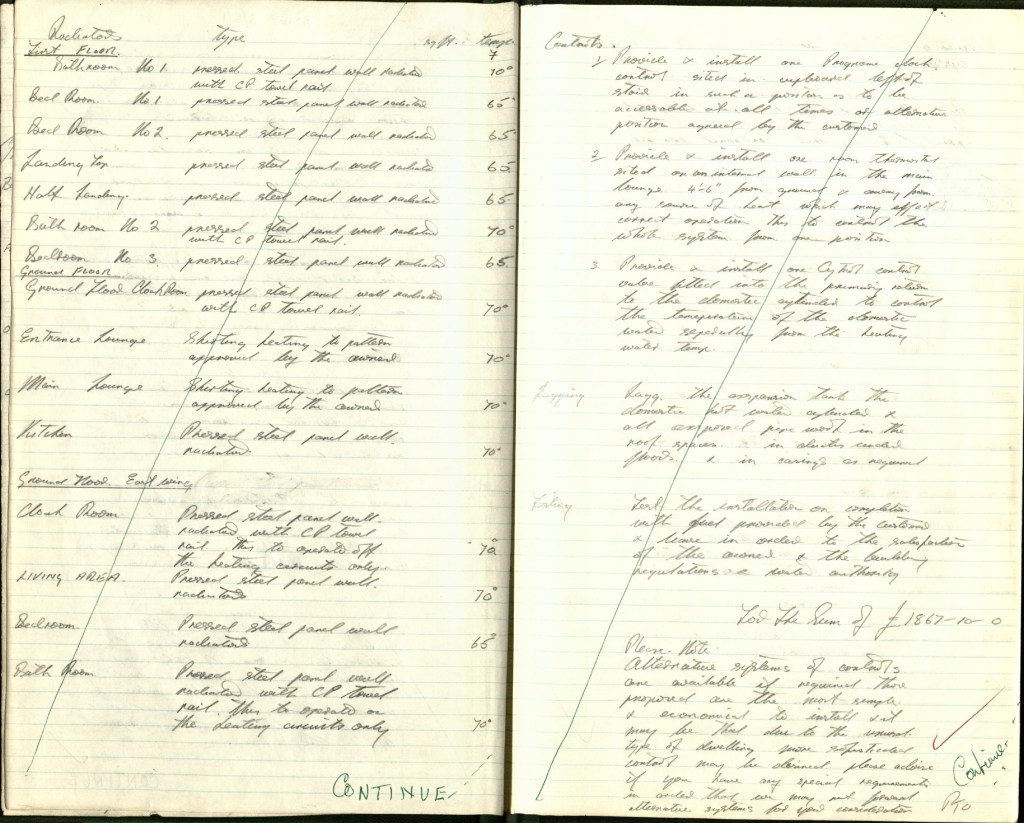 Radiators type temp
First FLOOR.
Bathroom No 1. pressed steel panel wall radiator 70°
with CP towel rail
Bed Room No 1 pressed steel panel wall radiator 65°
Bed Room No 2. pressed steel panel wall radiator 65
Landing Top pressed steel panel wall radiator 65
Half Landing. pressed steel panel wall radiator 65
Bath room No 2 pressed steel panel wall radiator 70°
with CP towel rail.
Bedroom No 3. pressed steel panel wall radiator 65.
Ground FLOOR.
Ground Floor Cloak Room pressed steel panel wall radiator
with CP towel rail. 70°
Entrance Lounge Skirting heating to pattern
approved by the owner. 70°
Main Lounge Skirting heating to pattern
approved by the owner 70°
Kitchen Pressed steel panel wall
radiator. 70°
Ground Floor. East wing
Cloak Room Pressed steel panel wall.
radiator with CP towel
rail this to operate off 70.
the heating circuits only.
LIVING AREA. Pressed steel panel wall.
radiators 70°
Bedroom. Pressed steel panel wall
radiator 65°
Bath Room Pressed steel panel wall
radiator with CP towel
rail. This to operate on
the heating circuits only 70°
CONTINUE
Controls.
1. Provide & install one Programe clock
control sited in cupboard left of
stairs in such a position as to be
accessable at all times or alternative
position agreed by the customer
2. Provide & install one room thermostat
sited on an internal wall in the main
lounge 4'-6" from ground & away from
any source of heat which may effect
correct operation this to control the
whole system from one position
3. Provide & install one Cytrol control
valve fitted into the primary return
to the domestic cylinder to control
the temperature of the domestic
water seperately from the heating
water temp.
Lagging Lagg. the expansion tank the
domestic hot water cylinder &
all exposed pipe work in the
roof spaces. in ducts under
floors. & in casings as required
Testing Test the installation on completion
with fuel provided by the customer
& leave in order to the satisfaction
of the owner & the building
regulations & water authority
For The Sum of £1867-10-0
Please Note.
Alternative systems of controls
are available if required those
proposed are the most simple
& economical to install & it
may be that due to the unusual
type of dwelling more sofisticated
control may be desired please advise
if you have any special requirements
in order that we may put forward
alternative systems for your consideration
Continue.
PTO